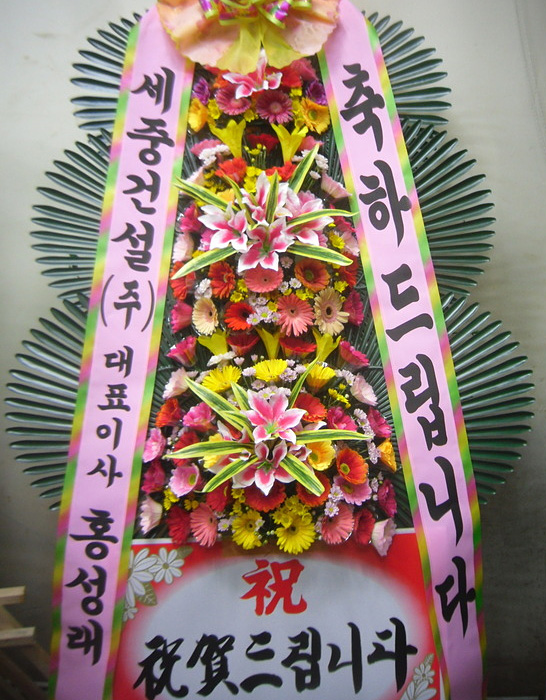 세중건설(주) 대표이사 홍성래
축하드립니다
祝
祝賀드립니다